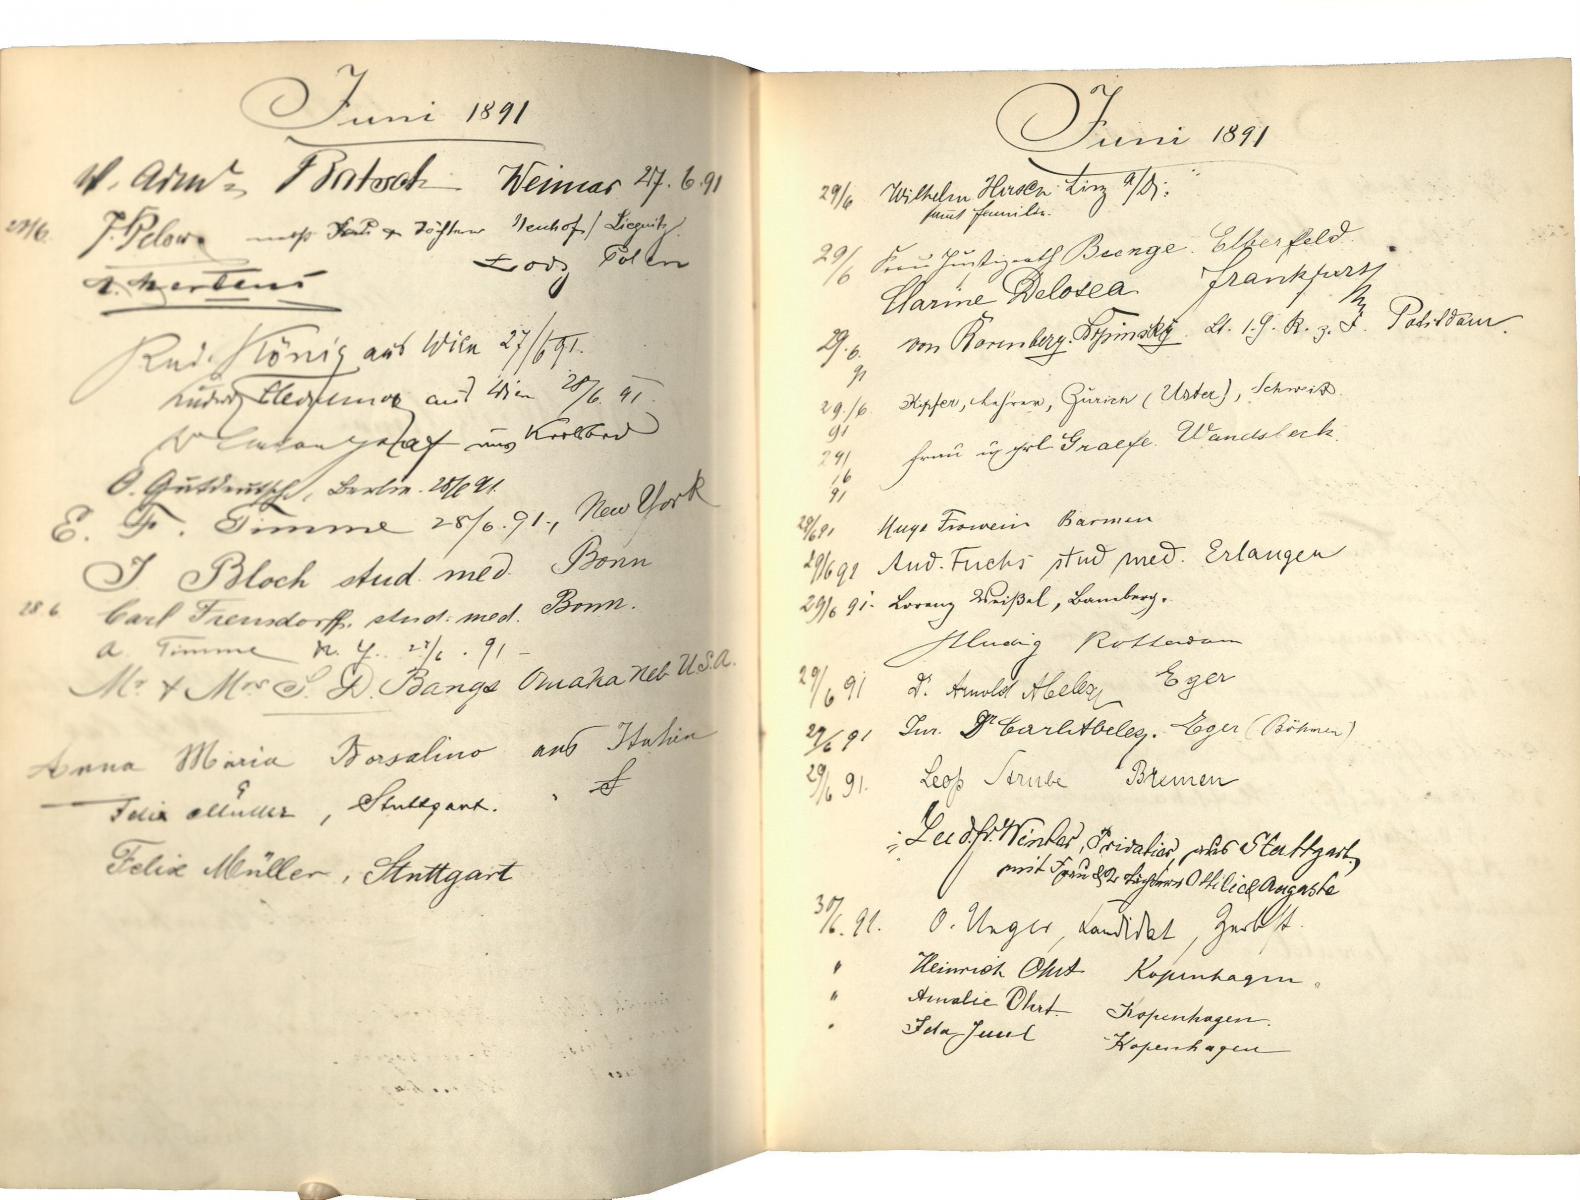 Juni 1891
Batsch Weimar 27. 6. 91
J. Pelow nebst Frau & Töchter Neuhof / Liegnitz
Lodz Polen
A. Mertens
Rud. König aus Wien 27/6 91.
Ludwig aus Wien 28/6. 91.
aus Karlsbad
O. Gutdeutsch, Berlin. 28/6 91.
E. F. Timme 28/6. 91., New York
J Bloch stud. med. Bonn
28 6 Carl Frensdorff. stud. med. Bonn.
A. Timme N. Y. 28/6. 91 -
Mr & Mrs S. D. Bangs Omaha Neb U.S.A.
Anna Maria Borsalino aus Italien
Felix Müller, Stuttgart.
Felix Müller, Stuttgart
Juni 1891
29/6 Wilhelm Hirsch Linz a/D.
samt Familie.
29/6 Frau Justizrath Elberfeld.
Clarine Delosea Frankfurt
29. 6. 91 von Lt. 1. G. R. z. F. Potsdam.
29./6. 91 Kipfer, Lehrer, Zürich (Uster), Schweiz.
29/6 91 Frau u Frl Graefe. Wandsbeck.
29/6 91 Hugo Frowein Barmen
29/6 91 And. Fuchs stud med. Erlangen
29/6 91. Lorenz Weißel, Bamberg.
Rotterdam
29/6 91 Dr. Arnold Abeles Eger
29/6 91 Jur. Dr Carl Abeles. Eger (Böhmen)
29/6 91. Leop Strube Bremen
Winter, Privatier, aus Stuttgart,
mit Frau & 2 Töchtern Ottilie & Auguste
30/6. 91. O. Unger, Kandidat, Zerbst.
" Heinrich Ohrt Kopenhagen.
" Amalie Ohrt. Kopenhagen.
" Ida Juul Kopenhagen